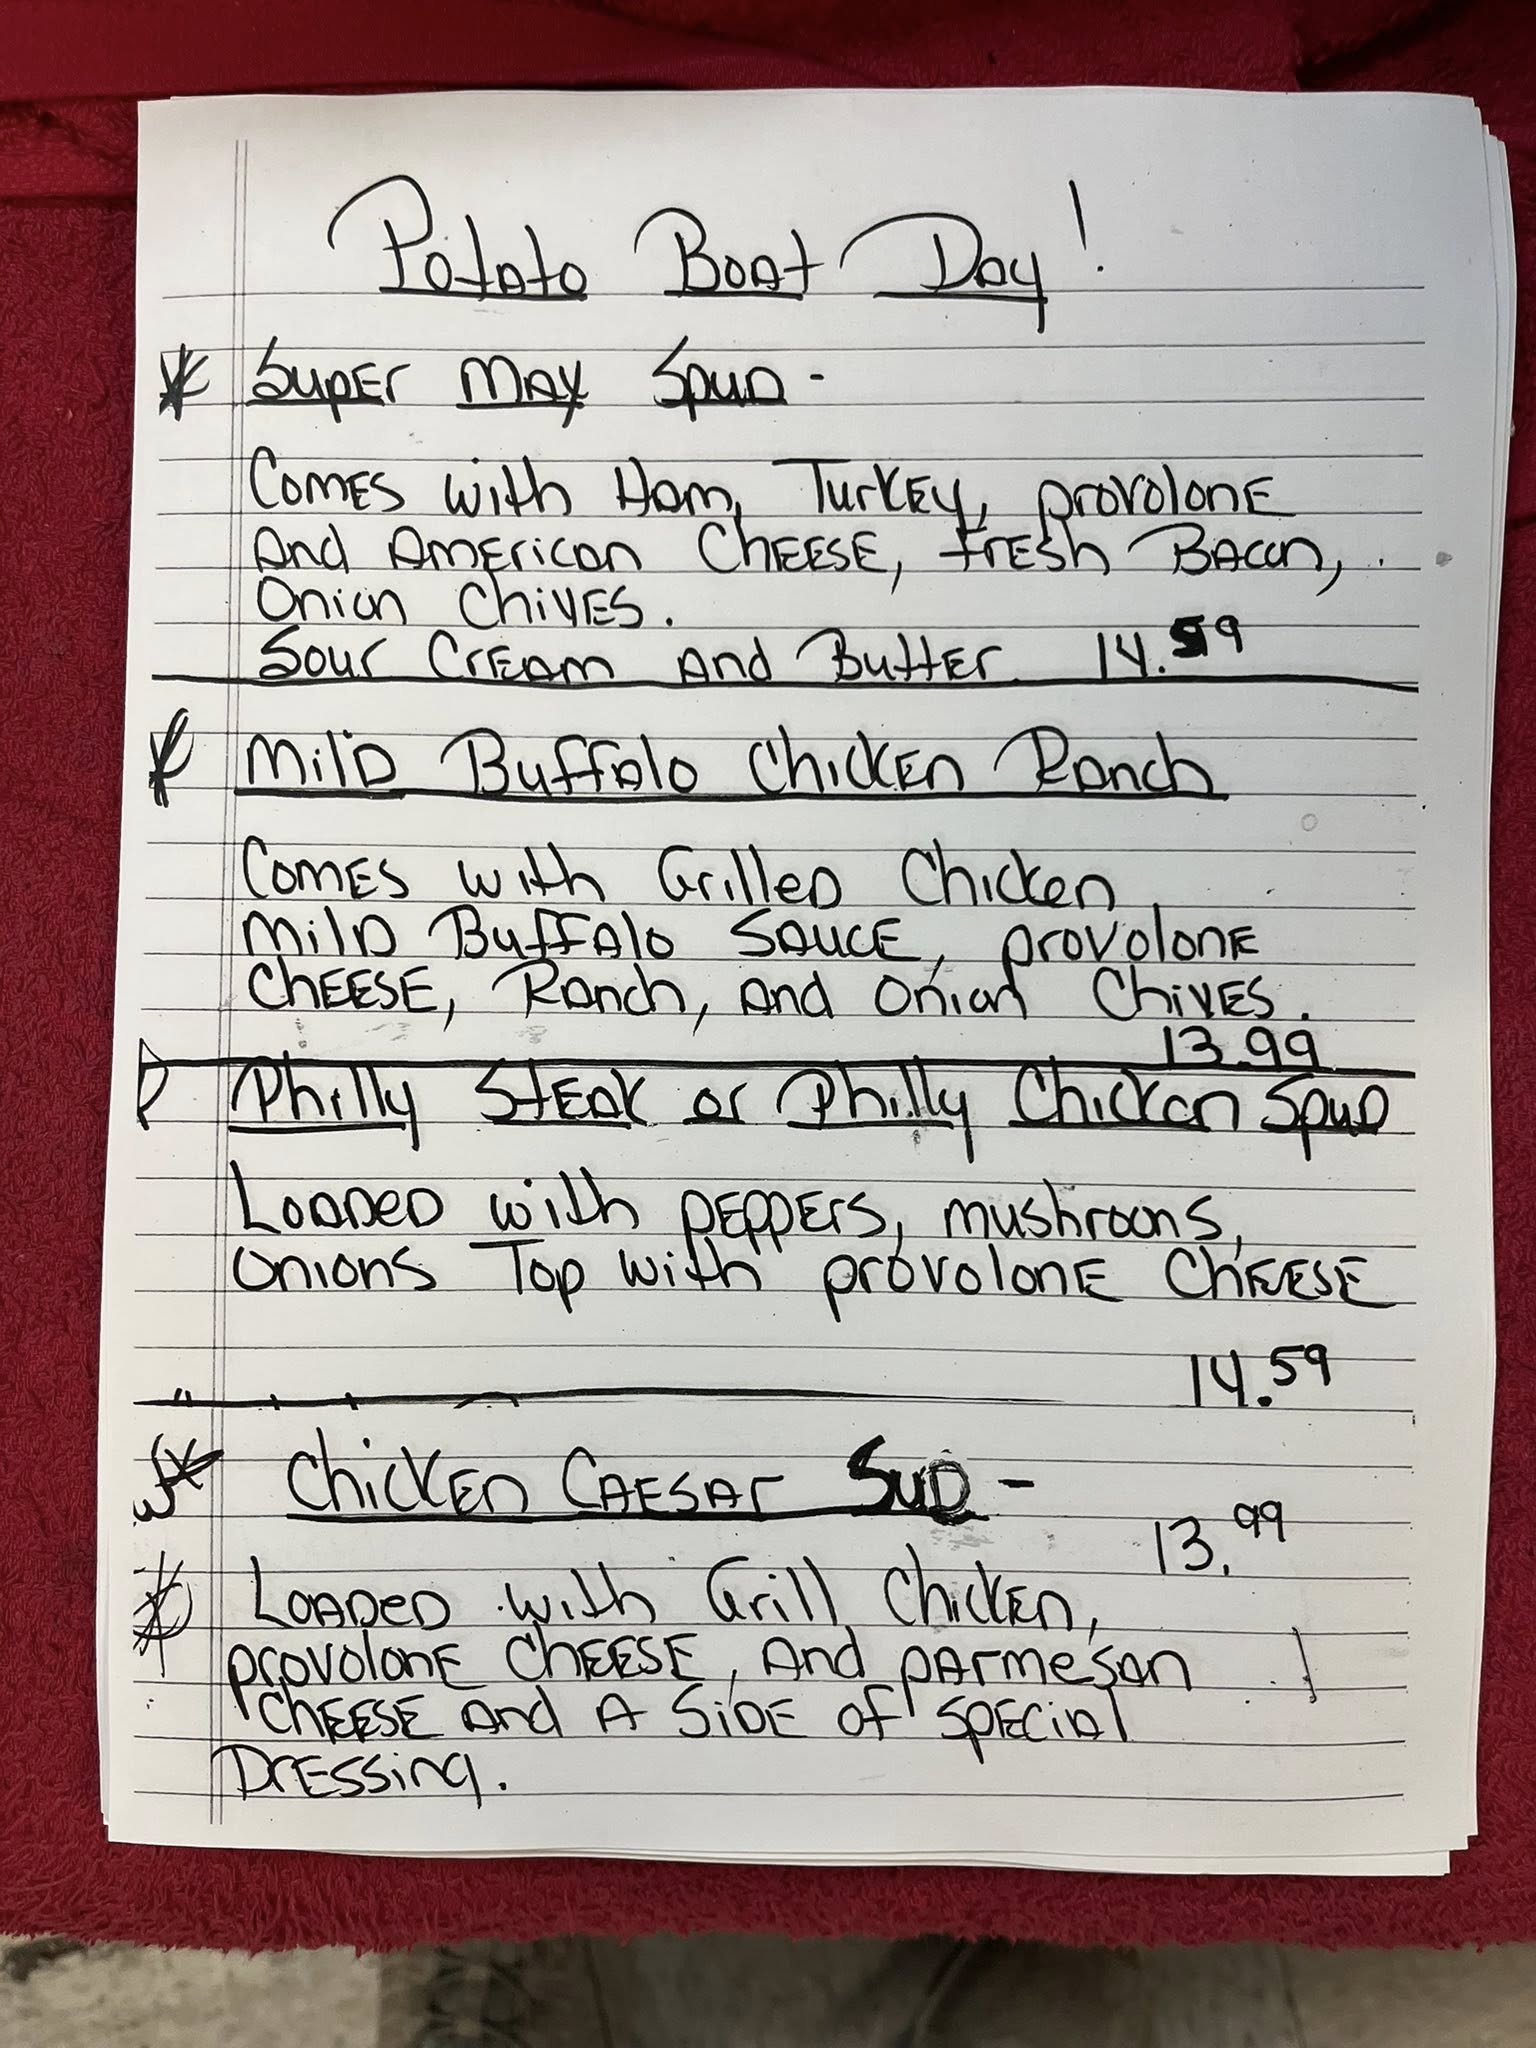 Potato Boat Day!
* Super Max Spud -
Comes with Ham, Turkey, provolone
And American Cheese, fresh Bacon,
Onion Chives.
Sour Cream and Butter 14.59
* Mild Buffalo Chicken Ranch
Comes with Grilled Chicken
Mild Buffalo Sauce, provolone
Cheese, Ranch, and onion Chives.
13.99
Philly Steak or Philly Chicken Spud
Loaded with peppers, mushrooms,
onions Top with provolone Cheese
14.59
Chicken Caesar Sud -
13.99
* Loaded with Grill Chicken,
provolone Cheese, And parmesan
Cheese and A Side of Special
Dressing.